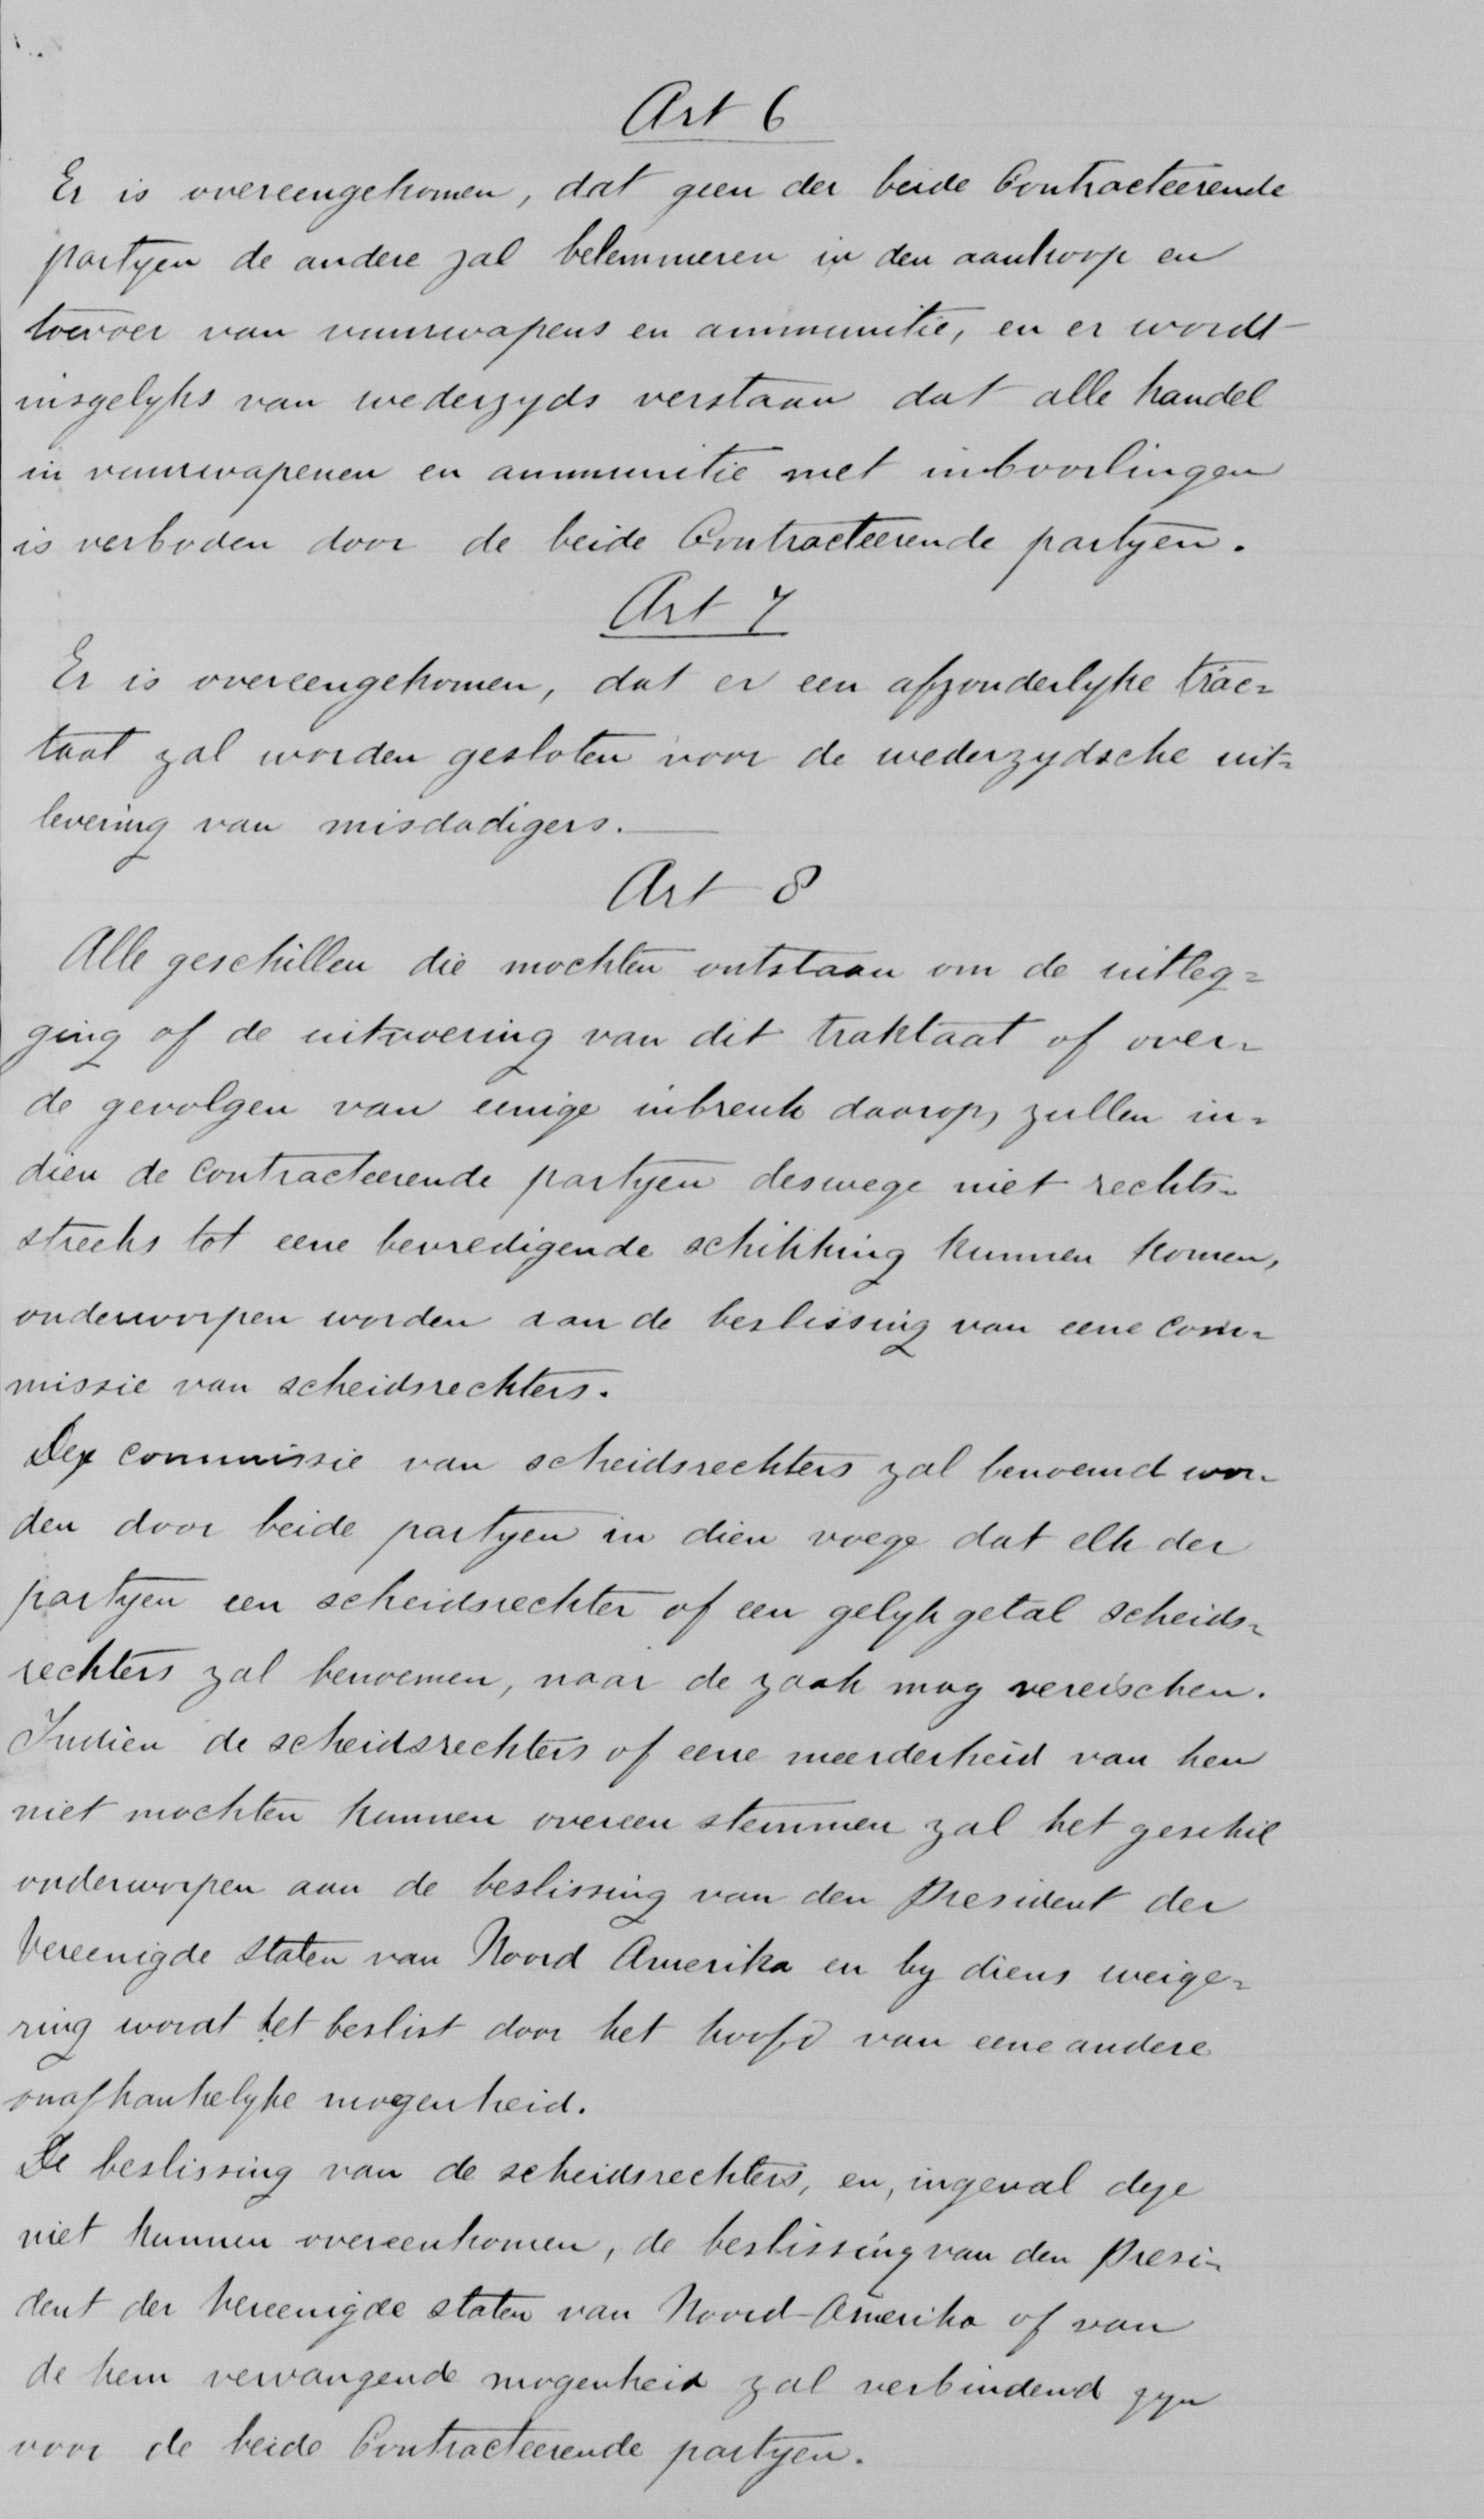 Art 6
Er is overeengekomen, dat geen der beide Contracteerende
partyen de andere zal belemmeren in den aankoop en
toevoer van vuurwapens en ammunitie, en er wordt
insgelyks van wederzyds verstaan dat alle handel
in vuurwapenen en ammunitie met inboorlingen
is verboden door de beide Contracteerende partyen.
Art 7
Er is overeengekomen, dat er een afzonderlyke trac=
taat zal worden gesloten voor de wederzydsche uit=
levering van misdadigers.
Art 8
Alle geschillen die mochten ontstaan om de uitleg=
ging of de uitvoering van dit traktaat of over=
de gevolgen van eenige inbreuk daarop, zullen in=
dien de contracteerende partyen deswege niet rechts=
streeks tot eene bevredigende schikking kunnen komen,
onderworpen worden aan de beslissing van eene com=
missie van scheidsrechters.
Deze commissie van scheidsrechters zal benoemd wor=
den door beide partyen in dien voege dat elk der
partyen een scheidsrechter of een gelyk getal scheids=
rechters zal benoemen, naar de zaak mag vereischen.
Indien de scheidsrechters of eene meerderheid van hen
niet mochten kunnen overeen stemmen zal het geschil
onderworpen aan de beslissing van den President der
Vereenigde Staten van Noord Amerika en by diens weige=
ring wordt het beslist door het hoofd van eene andere
onafhankelyke mogenheid.
De beslissing van de scheidsrechters, en, ingeval deze
niet kunnen overeenkomen, de beslissing van den Presi=
dent der Vereenigde staten van Noord-Amerika of van
de hem vervangende mogenheid zal verbindend zyn
voor de beide Contracteerende partyen.